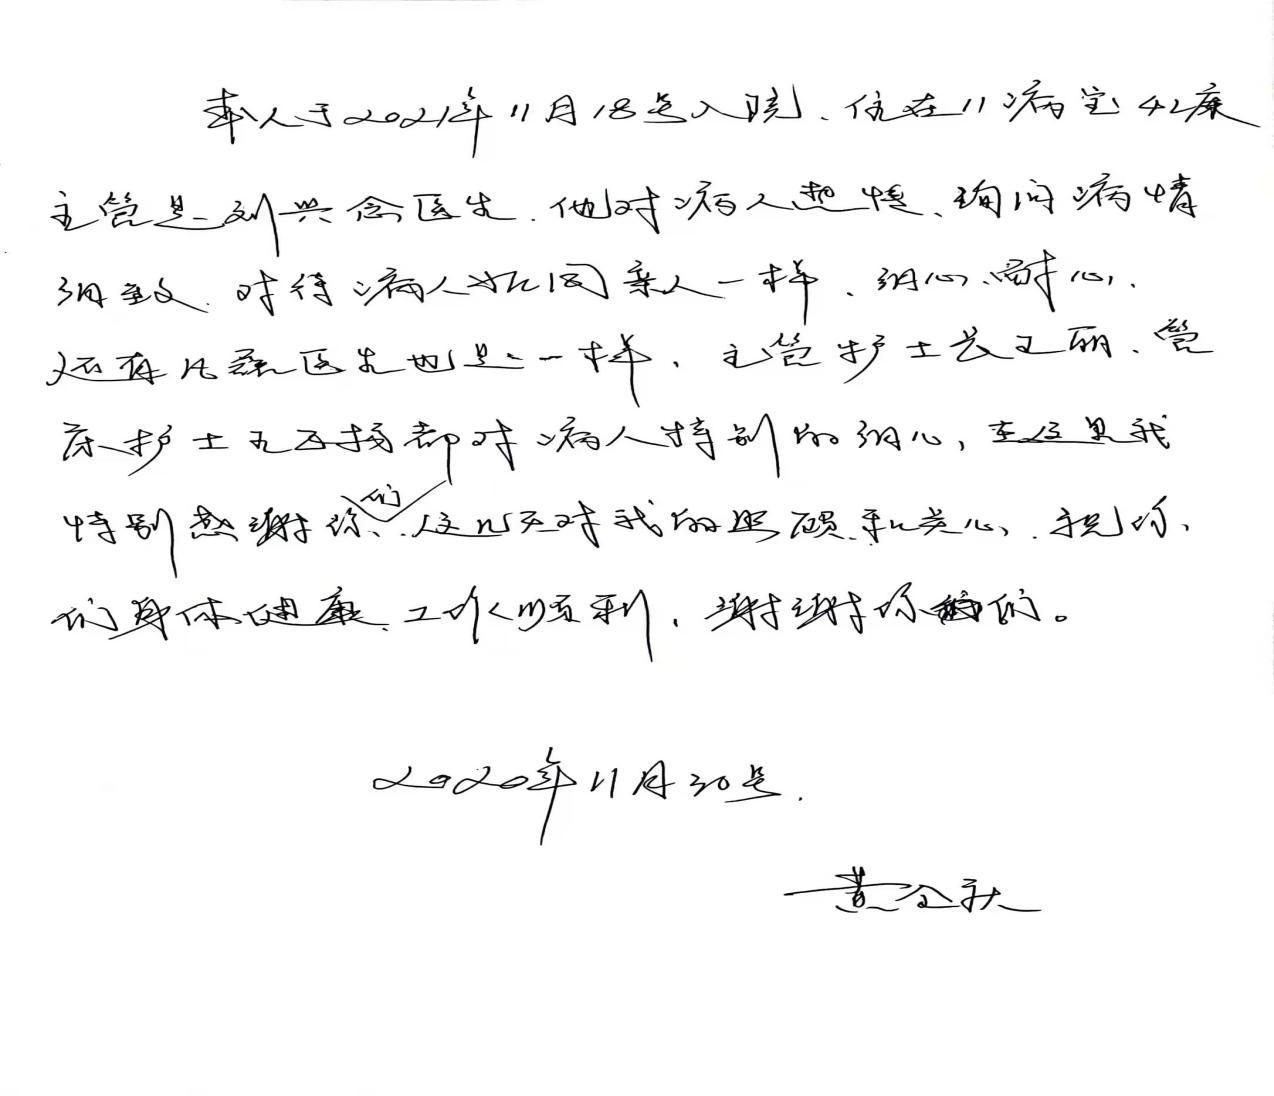 本人于2021年11月18号入院、住在11病室42床
主管是刘兴念医生.他对病人热情、询问病情
细致.对待病人如同亲人一样、细心、耐心.
还有凡磊医生也是一样.主管护士长王丽、管
床护士孔玉扬都对病人特别的细心,在这里我
特别感谢你们、这几天对我的照顾和关心,祝你
们身体健康、工作顺利,谢谢你们。
2020年11月30号.
黄全秋